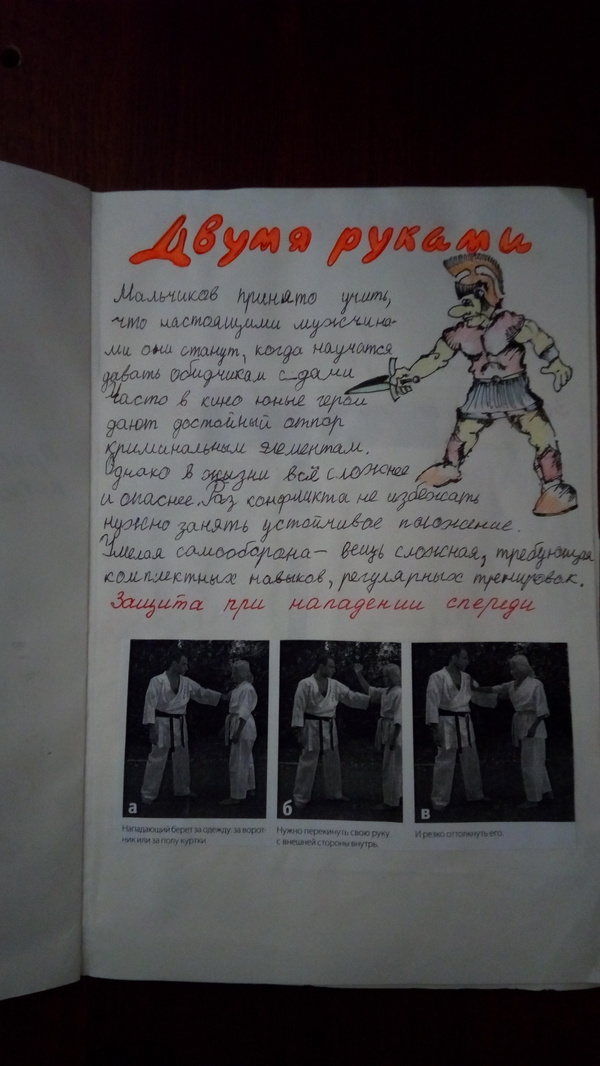 Двумя руками
Мальчиков принято учить,
что настоящими мужчина-
ми они станут, когда научатся
давать обидчикам сдачи
Часто в кино юные герои
дают достойный отпор
криминальным элементам.
Однако в жизни всё сложнее
и опаснее. Раз конфликта не избежать
нужно занять устойчивое положение.
Умелая самооборона – вещь сложная, требующая
комплектных навыков, регулярных тренировок.
Защита при нападении спереди
а
б
в
Нападающий берет за одежду: за ворот-
ник или за полу куртки
Нужно перекинуть свою руку
с внешней стороны внутрь.
И резко оттолкнуть его.